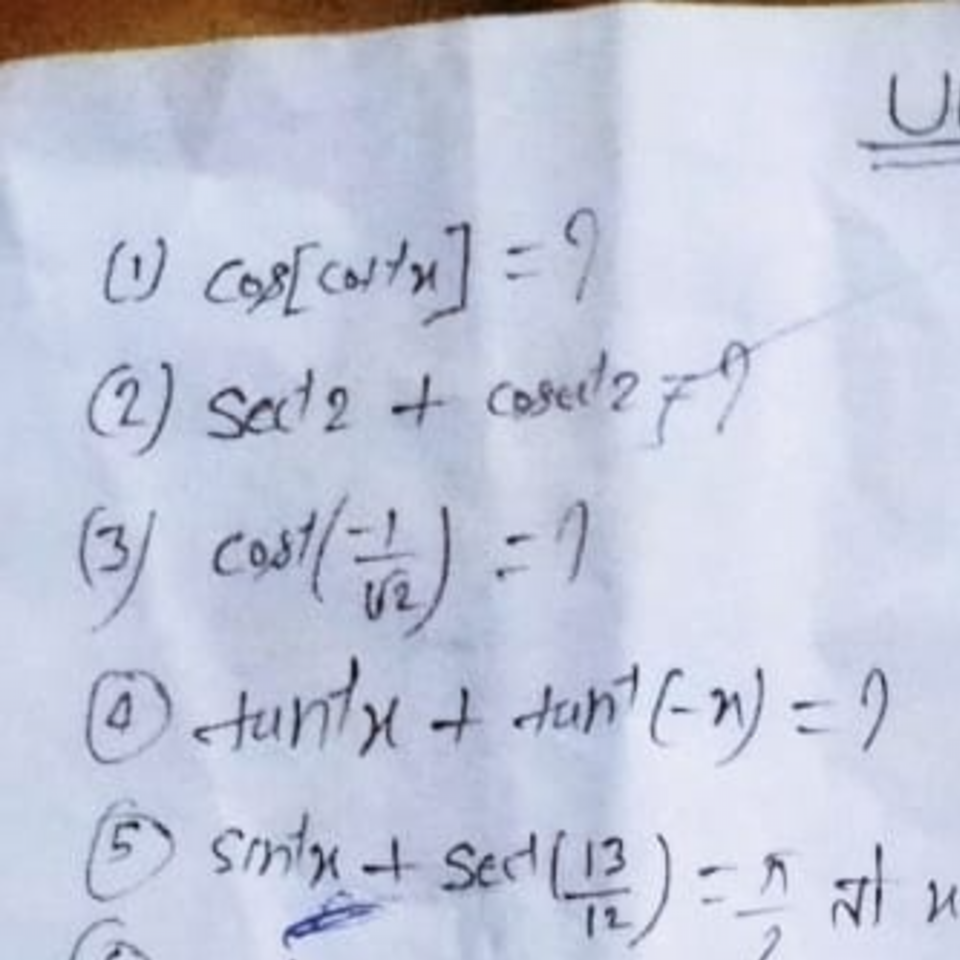 U
(1) cos[cos⁻¹x] = ?
(2) sec⁻¹2 + cosec⁻¹2 = ?
(3) cos⁻¹(-1/√2) = ?
④ tan⁻¹x + tan⁻¹(-x) = ?
⑤ sin⁻¹x + sec⁻¹(13/12) = π/2 तो x